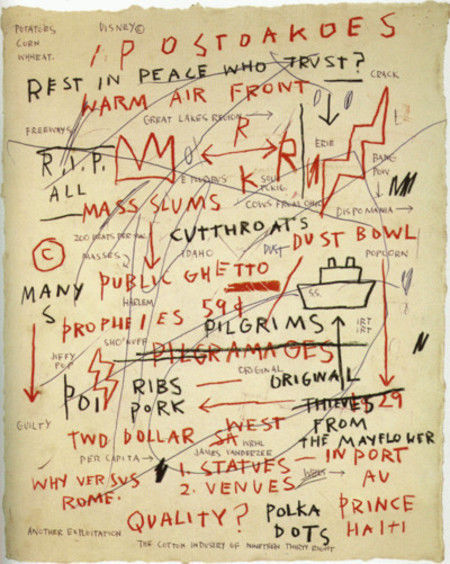 POTATOES DISNEY©
CORN
WHHEAT.
I.P OSTOAKOES
REST IN PEACE WHO TRUST?
CRACK
WARM AIR FRONT
GREAT LAKES REGION →
FREEWAYS
R
ERIE
R.I.P. R
BANG
K POW
ALL
MASS SLUMS
DISPOMANIA →
CUTTHROATS
DUST DUST BOWL
© MASSES IDAHO POPCORN
PUBLIC GHETTO
MANY HARLEM S.S.
S PROPHEIES 59¢
PILGRIMS IRT
IRT
SHO'NUFF
PILGRAMAGES
JIFFY
POP ORIGINAL
POI RIBS — ORIGINAL
PORK ← THIEVES 29
GUILTY WEST FROM
TWO DOLLAR SA THE MAYFLOWER
WRHL
PER CAPITA → JAMES VANDERZEE
1. STATUES — IN PORT
WHY VERSUS 2. VENUES AU
ROME. PRINCE
QUALITY? POLKA HAITI
DOTS
ANOTHER EXPLOITATION
THE COTTON INDUSTRY OF NINETEEN THIRTY EIGHT